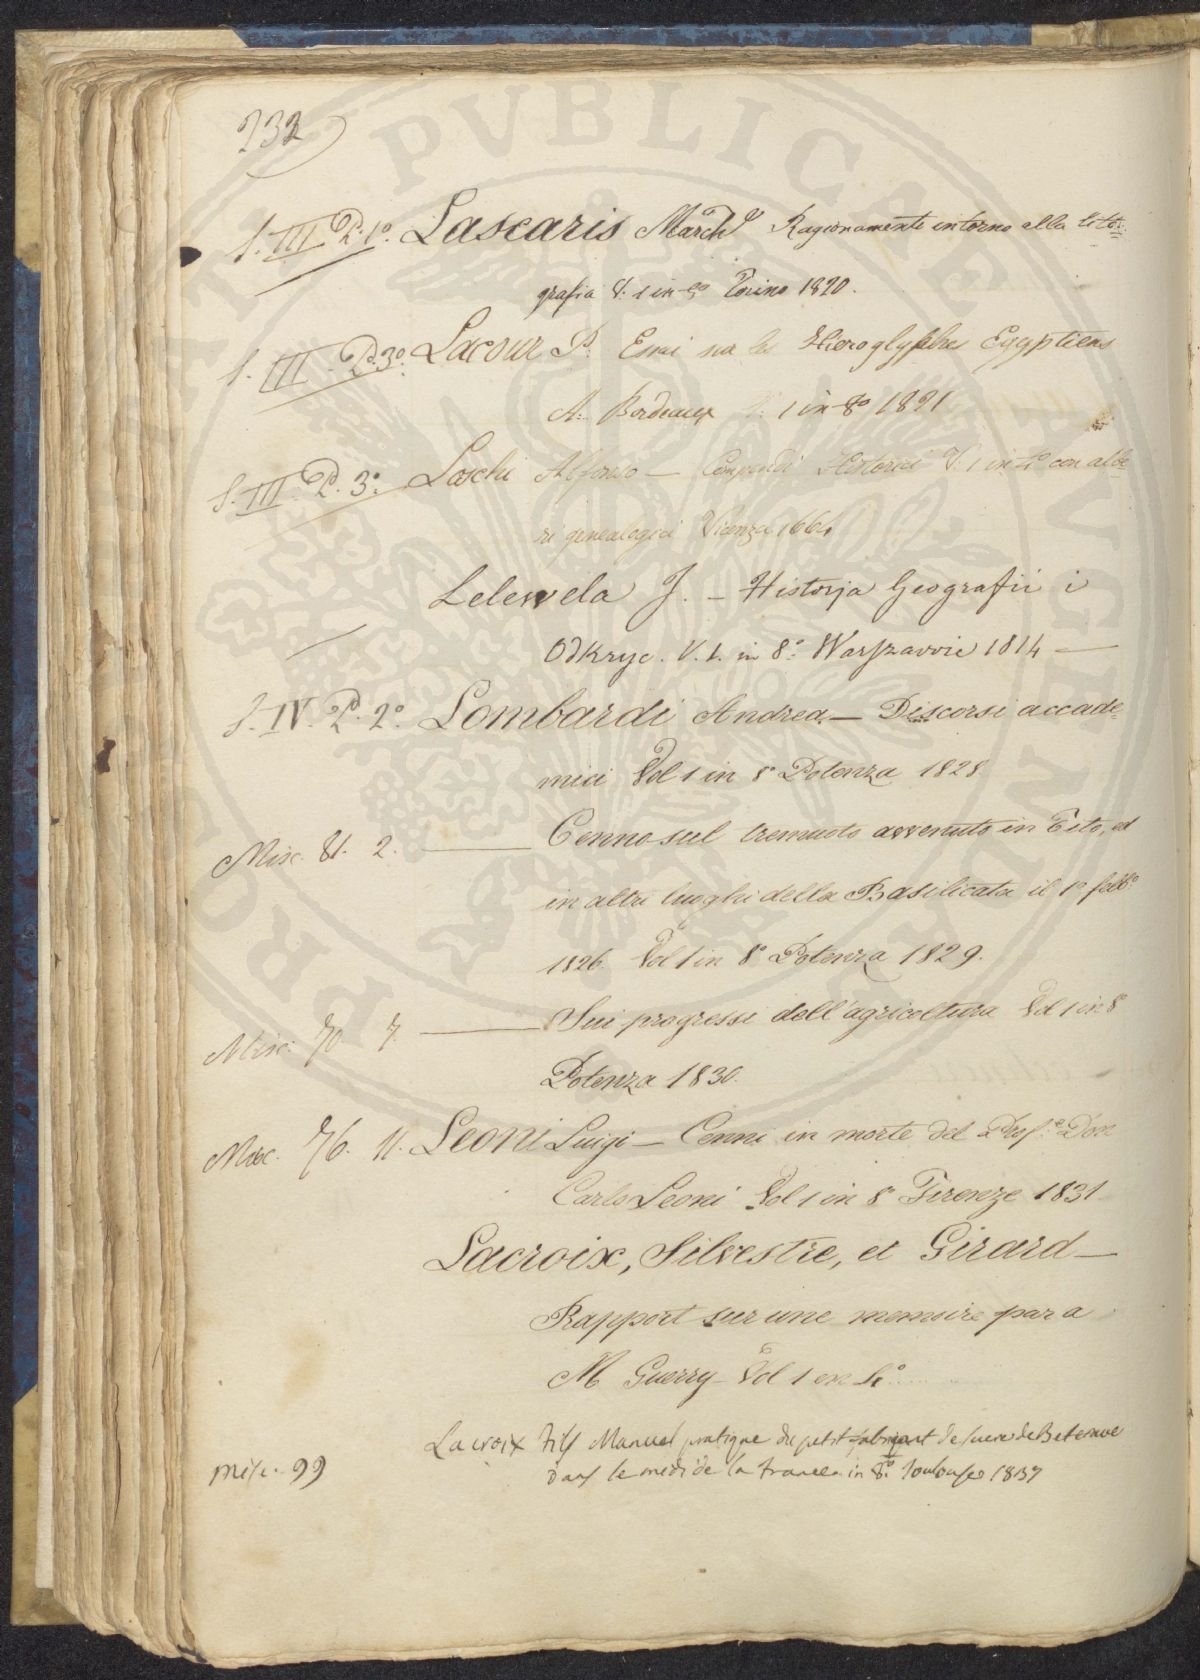 232
S. III P. 1º. Lascaris March.e Ragionamento intorno alla lito=
grafia V. 1 in 8º Torino 1820.
S. III P. 3º. Lacour P. Essai sur les Hieroglyphes Egyptiens
A. Bordeaux V. 1 in 8º 1821
S. III P. 3º. Loschi Alfonso — Compendi Historici V. 1 in 4º con albe
ri genealogici Vicenza 1664
Lelewela J. — Historja Geografii i
Odkryc. V. 1. in 8º Warszawie 1814 —
S. IV. P. 2º. Lombardi Andrea — Discorsi accade=
mici Vol 1 in 8º Potenza 1828.
Misc. 81. 2. — Cenno sul tremuoto avvenuto in Tito, ed
in altri luoghi della Basilicata il 1º febb.º
1826. Vol 1 in 8º Potenza 1829.
Misc. 70 7. — Sui progressi dell'agricoltura Vol 1 in 8º
Potenza 1830.
Misc. 76. 11. Leoni Luigi — Cenni in morte del Prof.e Don
Carlo Leoni Vol 1 in 8º Firenze 1831
Lacroix, Silvestre, et Girard —
Rapport sur une memoire par a
M Guerry — Vol 1 en 4º
Lacroix Fils Manuel pratique du petit fabriquant de sucre de Beterave
Misc. 99 dans le midi de la France. in 8º. Toulouse 1837